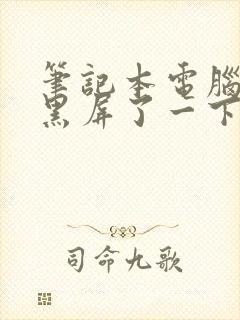 筆記本電腦
黑屏了一下
司命九歌